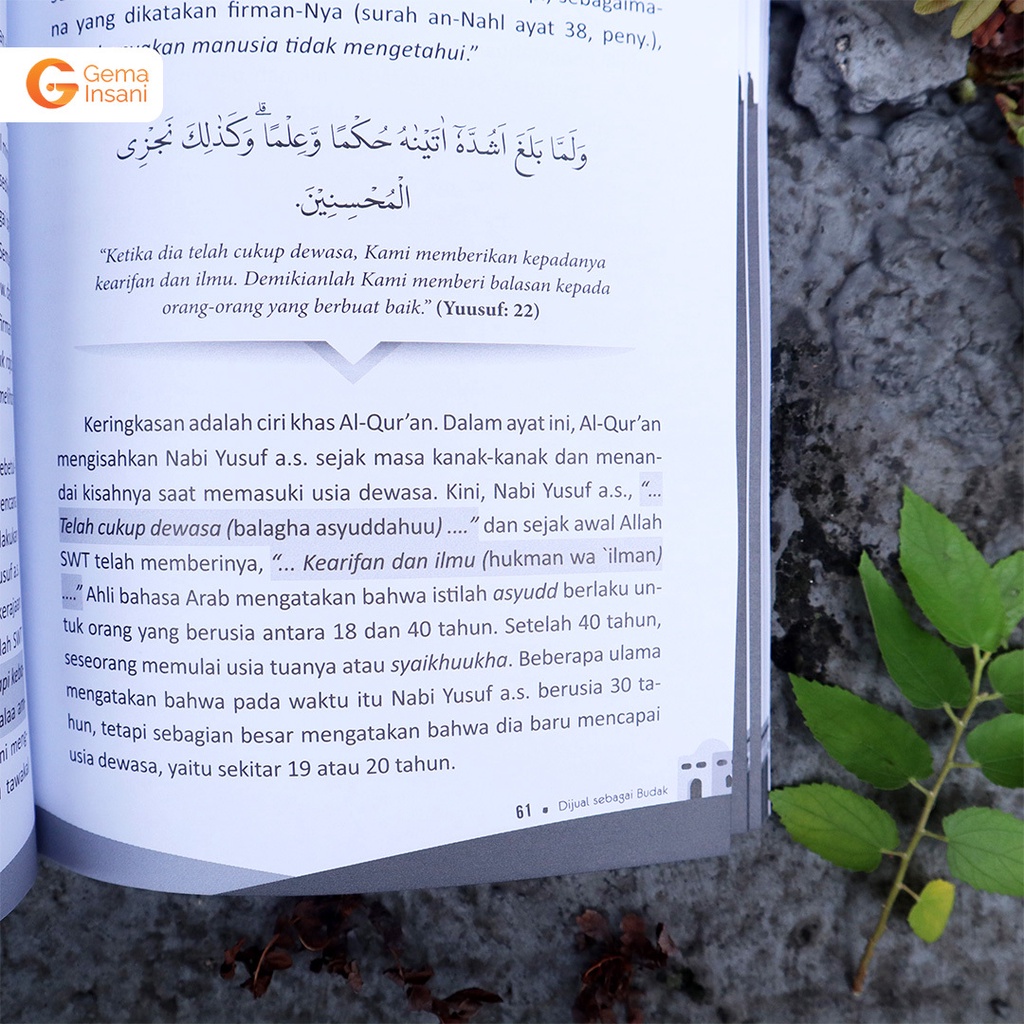 na yang dikatakan firman-Nya (surah an-Nahl ayat 38, peny.),
manusia tidak mengetahui.”
Gema
Insani
وَلَمَّا بَلَغَ اَشُدَّهٗٓ اٰتَيْنٰهُ حُكْمًا وَّعِلْمًا ۗوَكَذٰلِكَ نَجْزِى
الْمُحْسِنِيْنَ.
“Ketika dia telah cukup dewasa, Kami memberikan kepadanya
kearifan dan ilmu. Demikianlah Kami memberi balasan kepada
orang-orang yang berbuat baik.” (Yuusuf: 22)
Keringkasan adalah ciri khas Al-Qur’an. Dalam ayat ini, Al-Qur’an
mengisahkan Nabi Yusuf a.s. sejak masa kanak-kanak dan menan-
dai kisahnya saat memasuki usia dewasa. Kini, Nabi Yusuf a.s., “...
Telah cukup dewasa (balagha asyuddahuu) ....” dan sejak awal Allah
SWT telah memberinya, “... Kearifan dan ilmu (hukman wa `ilman)
....” Ahli bahasa Arab mengatakan bahwa istilah asyudd berlaku un-
tuk orang yang berusia antara 18 dan 40 tahun. Setelah 40 tahun,
seseorang memulai usia tuanya atau syaikhuukha. Beberapa ulama
mengatakan bahwa pada waktu itu Nabi Yusuf a.s. berusia 30 ta-
hun, tetapi sebagian besar mengatakan bahwa dia baru mencapai
usia dewasa, yaitu sekitar 19 atau 20 tahun.
61 ▪ Dijual sebagai Budak